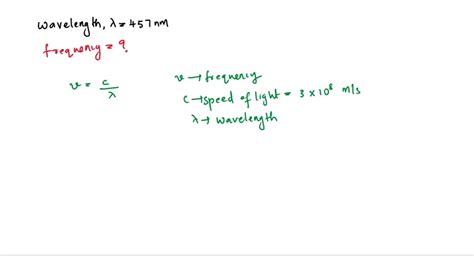 wavelength, λ = 457 nm
frequency = ?
ν = c/λ
ν → frequency
c → speed of light = 3 × 10⁸ m/s
λ → wavelength